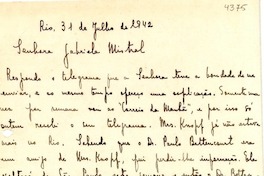 4375
Rio, 31 de Julho de 1942
Senhora Gabriela Mistral
Respondo o telegrama que a Senhora teve a bondade de me
enviar, e ao mesmo tempo ofereço uma explicação. Somente
uma por semana vem ao "Correio da Manhã", e por isso só
ontem recebi o seu telegrama. Mrs. Knopf já não estava
mais no Rio. Sabendo que o Dr. Paulo Bettencourt era
um amigo de Mrs. Knopf, fui pedir-lhe informação. Ele
de São Paulo esta semana e então o Dr. Betten-